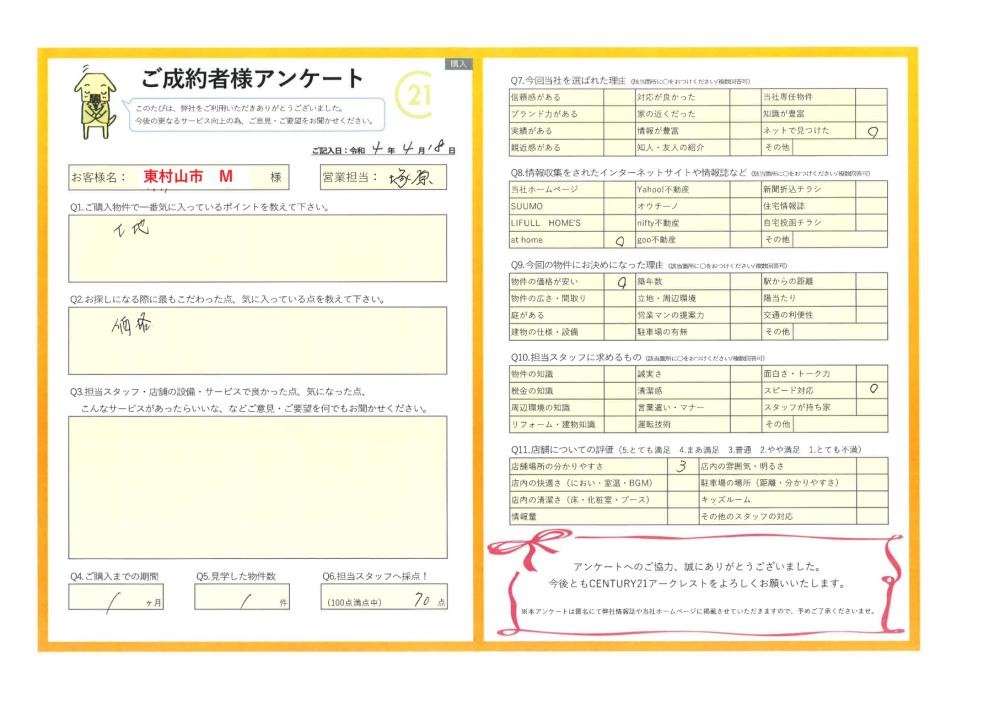 購入
ご成約者様アンケート
21
このたびは、弊社をご利用いただきありがとうございました。
今後の更なるサービス向上の為、ご意見・ご要望をお聞かせください。
ご記入日：令和 4 年 4 月 18 日
お客様名： 東村山市 M 様
営業担当： 塚原
Q1.ご購入物件で一番気に入っているポイントを教えて下さい。
土地
Q2.お探しになる際に最もこだわった点、気に入っている点を教えて下さい。
価格
Q3.担当スタッフ・店舗の設備・サービスで良かった点、気になった点、
こんなサービスがあったらいいな、などご意見・ご要望を何でもお聞かせください。
Q4.ご購入までの期間
1 ヶ月
Q5.見学した物件数
1 件
Q6.担当スタッフへ採点！
(100点満点中) 70 点
Q7.今回当社を選ばれた理由 (該当箇所に○をおつけください/複数回答可)
信頼感がある 対応が良かった 当社専任物件
ブランド力がある 家の近くだった 知識が豊富
実績がある 情報が豊富 ネットで見つけた ○
親近感がある 知人・友人の紹介 その他
Q8.情報収集をされたインターネットサイトや情報誌など (該当箇所に○をおつけください/複数回答可)
当社ホームページ Yahoo!不動産 新聞折込チラシ
SUUMO オウチーノ 住宅情報誌
LIFULL HOME'S nifty不動産 自宅投函チラシ
at home ○ goo不動産 その他
Q9.今回の物件にお決めになった理由 (該当箇所に○をおつけください/複数回答可)
物件の価格が安い ○ 築年数 駅からの距離
物件の広さ・間取り 立地・周辺環境 陽当たり
庭がある 営業マンの提案力 交通の利便性
建物の仕様・設備 駐車場の有無 その他
Q10.担当スタッフに求めるもの (該当箇所に○をおつけください/複数回答可)
物件の知識 誠実さ 面白さ・トーク力
税金の知識 清潔感 スピード対応 ○
周辺環境の知識 言葉遣い・マナー スタッフが持ち家
リフォーム・建物知識 運転技術 その他
Q11.店舗についての評価（5.とても満足 4.まあ満足 3.普通 2.やや満足 1.とても不満）
店舗場所の分かりやすさ 3 店内の雰囲気・明るさ
店内の快適さ（におい・室温・BGM） 駐車場の場所（距離・分かりやすさ）
店内の清潔さ（床・化粧室・ブース） キッズルーム
情報量 その他のスタッフの対応
アンケートへのご協力、誠にありがとうございました。
今後ともCENTURY21アークレストをよろしくお願いいたします。
※本アンケートは匿名にて弊社情報誌や当社ホームページに掲載させていただきますので、予めご了承くださいませ。